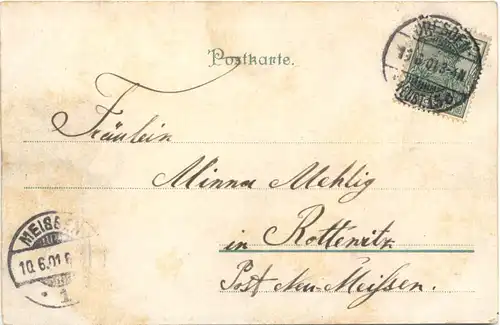 Postkarte.
DRESDEN
Fräulein
Minna Mehlig
in Rottewitz
Post Neu-Meissen.
MEISSEN
10.6.01.
1